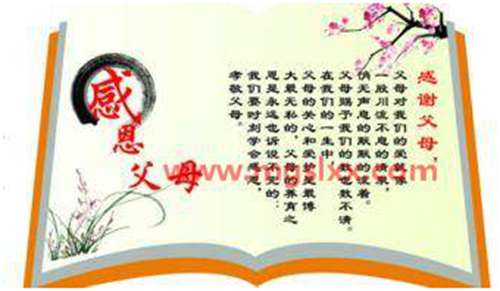 感谢父母,
父母对我们的爱,就像
一股川流不息的清泉,
悄无声息的默默的流着。
父母赐予我们的数也数不清。
在我们的一生中,
父母的关心和爱护是最博
大最无私的,父母的养育之
恩是永远也诉说不完的…
我们要时刻学会感恩,
孝敬父母。
感恩父母
www.mgslxx.com